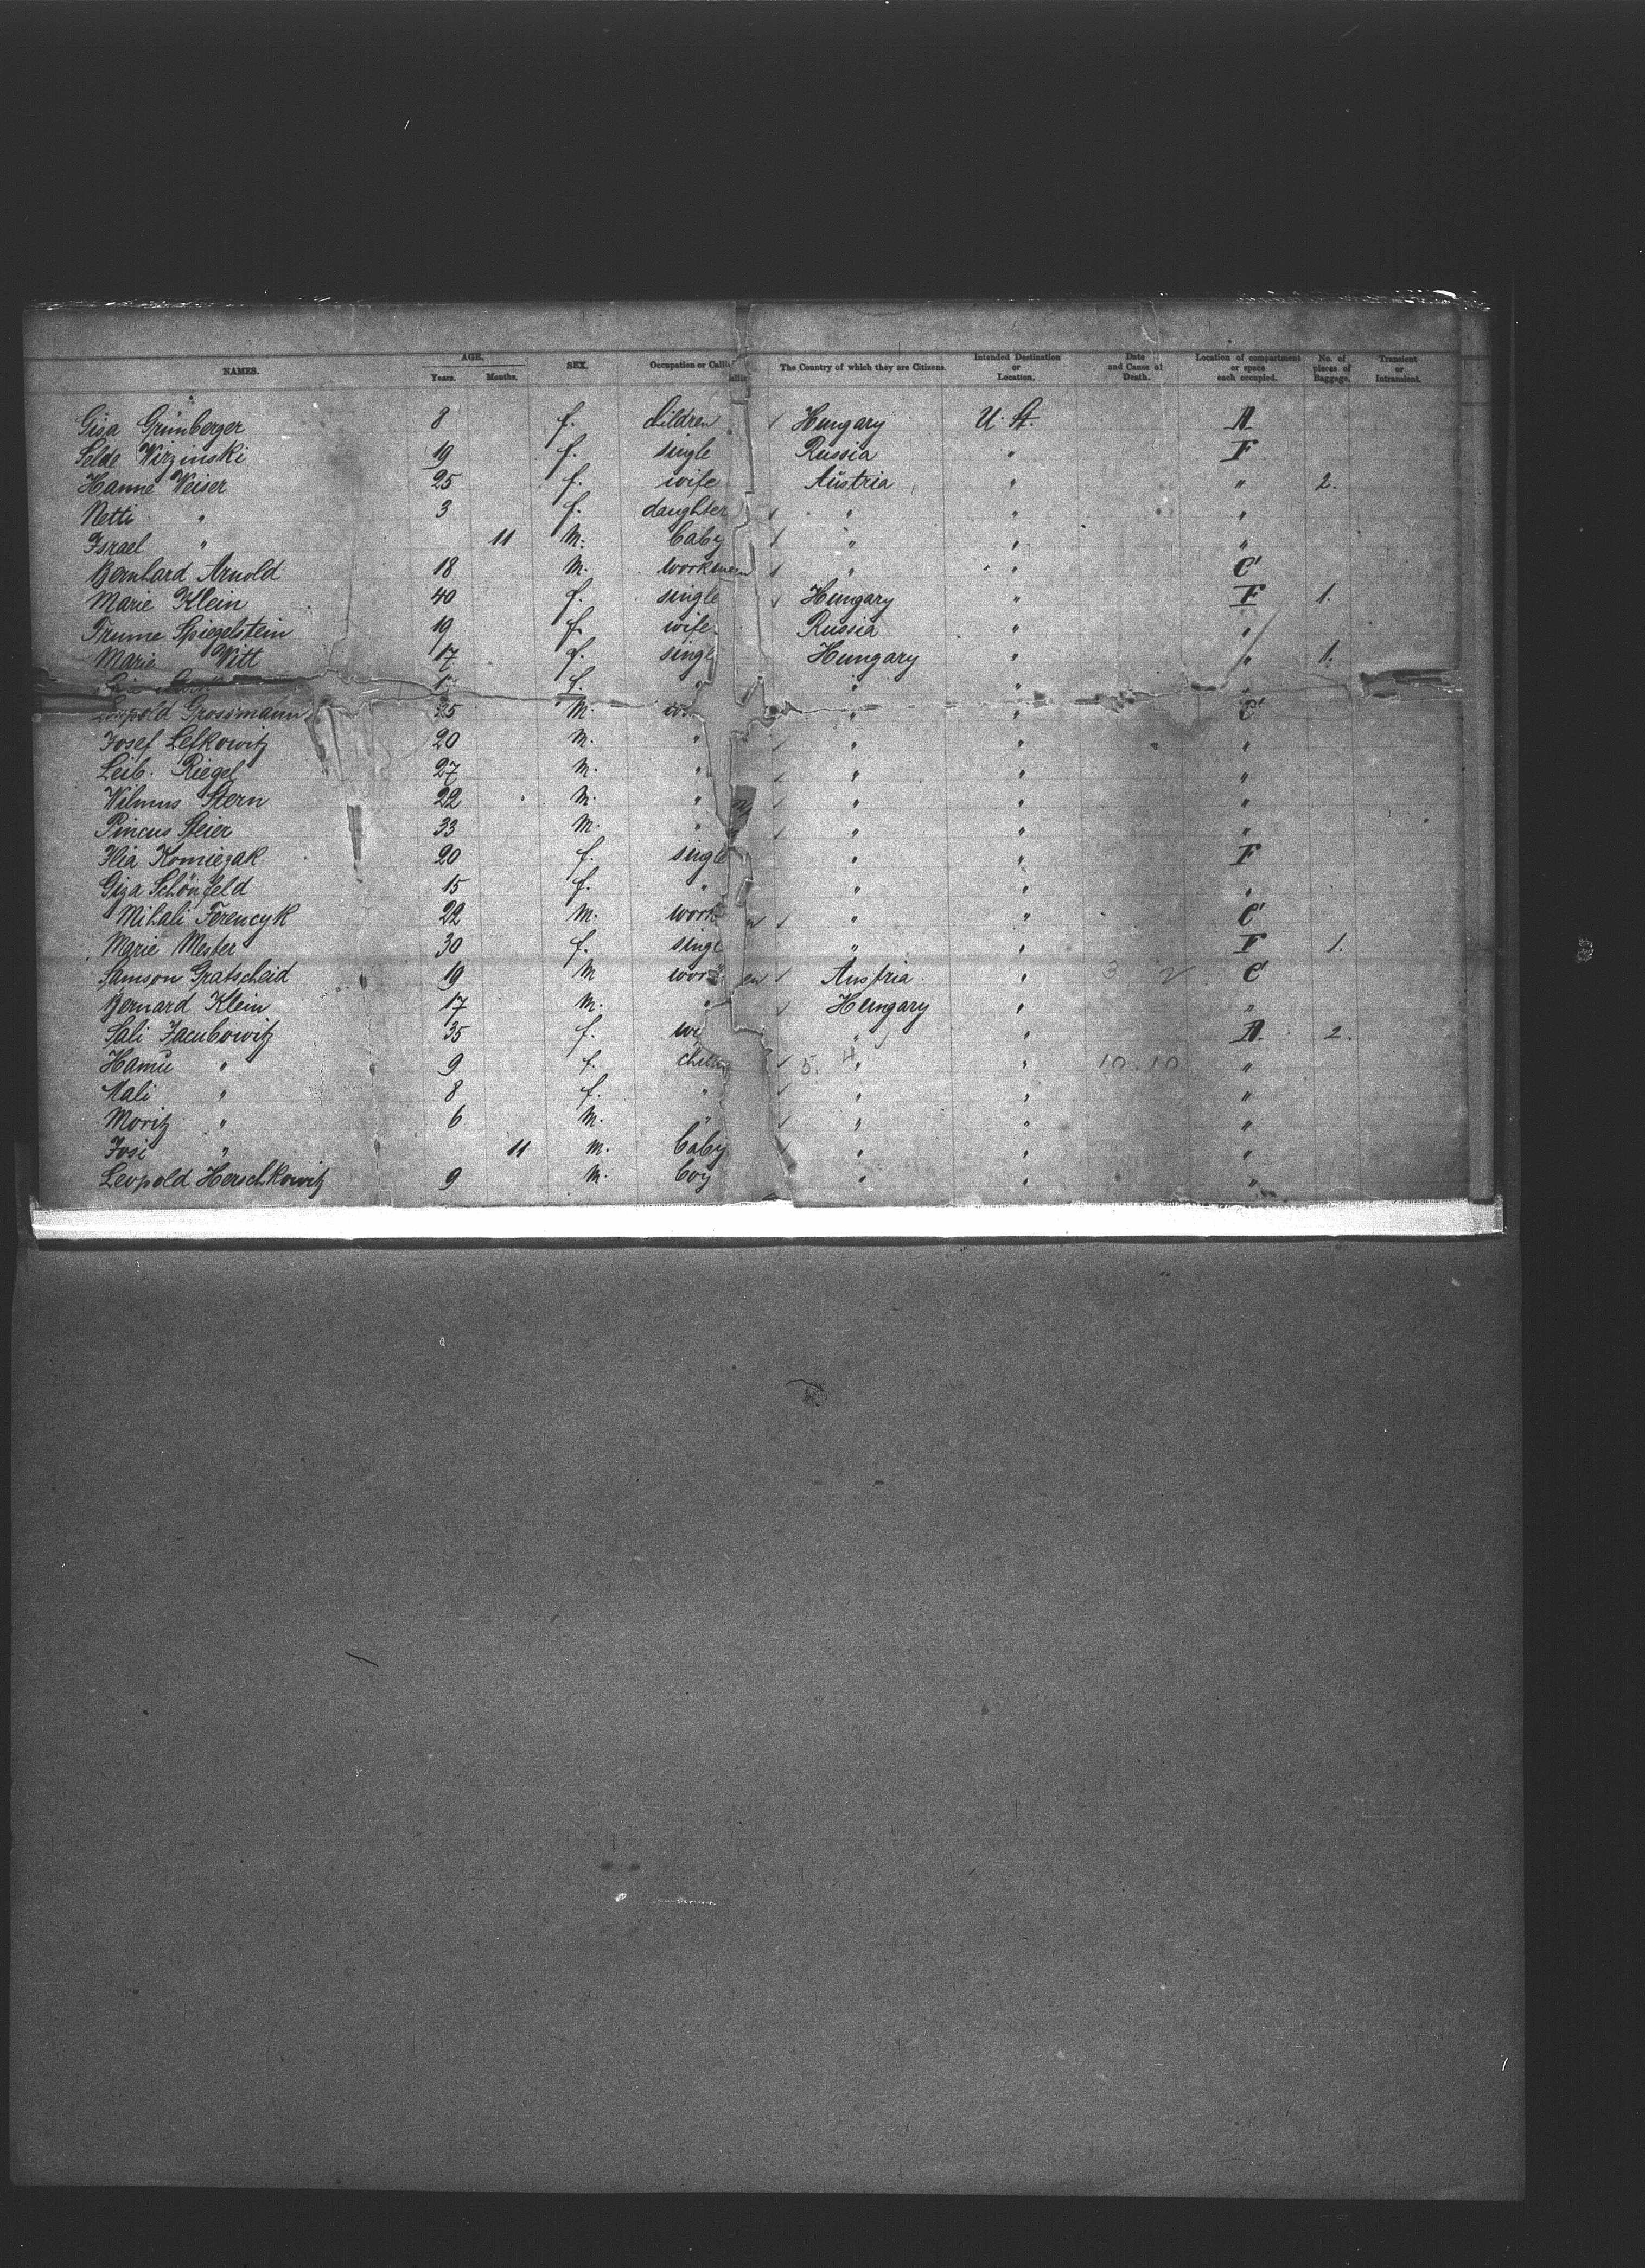 NAMES. AGE. Years. Months. SEX. Occupation or Calli The Country of which they are Citizens. Intended Destination or Location. Date and Cause of Death. Location of compartment or space each occupied. No. of pieces of Baggage. Transient or Intransient.
Gisa Grünberger 8 f. children ✓ Hungary U. St. A
Selde Wirzinski 19 f. single Russia " F
Hanne Weiser 25 f. wife Austria " " 2.
Netti " 3 f. daughter ✓ " " "
Israel " 11 M. baby ✓ " " "
Bernhard Arnold 18 M. workmen ✓ " " C
Marie Klein 40 f. single ✓ Hungary " F 1.
Frume Spiegelstein 19 f. wife Russia " "
Marie Witt 17 f. singl Hungary " " 1.
f. " "
Leopold Grossmann 35 M. " " C
Josef Lefkowitz 20 M. " ✓ " " "
Leib. Riegel 27 M. " ✓ " " "
Wilmus Stern 22 M. " ✓ " " "
Pincus Steier 33 M. " ✓ " " "
Ilia Komiezak 20 f. single " " F
Giza Schönfeld 15 f. " " " "
Mihali Ferencyk 22 M. work n ✓ " " C
Marie Mester 30 f. singl " " F 1.
Samson Gratscheid 19 M work en ✓ Austria " 3 2 C
Bernard Klein 17 M. " ✓ Hungary " "
Sali Jacubowitz 35 f. wi " " A. 2.
Hamu " 9 f. chil ✓ 5. 4 " " 10.10 "
Mali " 8 f. " ✓ " " "
Moritz " 6 M. " ✓ " " "
Josi " 11 M. baby " " "
Leopold Herschkowitz 9 M. boy " " "